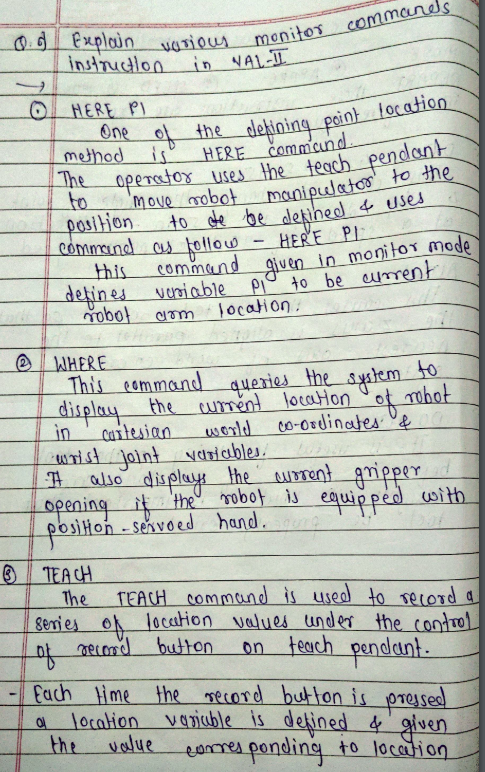 Q.9 Explain various monitor commands
instruction in VAL-II
→
① HERE P1
One of the defining point location
method is HERE command.
The operator uses the teach pendant
to move robot manipulator to the
position to be defined & uses
command as follow - HERE P1.
this command given in monitor mode
defines variable P1 to be current
robot arm location.
② WHERE
This command queries the system to
display the current location of robot
in cartesian world co-ordinates &
wrist joint variables.
It also displays the current gripper
opening if the robot is equipped with
position-servoed hand.
③ TEACH
The TEACH command is used to record a
series of location values under the control
of record button on teach pendant.
- Each time the record button is pressed
a location variable is defined & given
the value corresponding to location